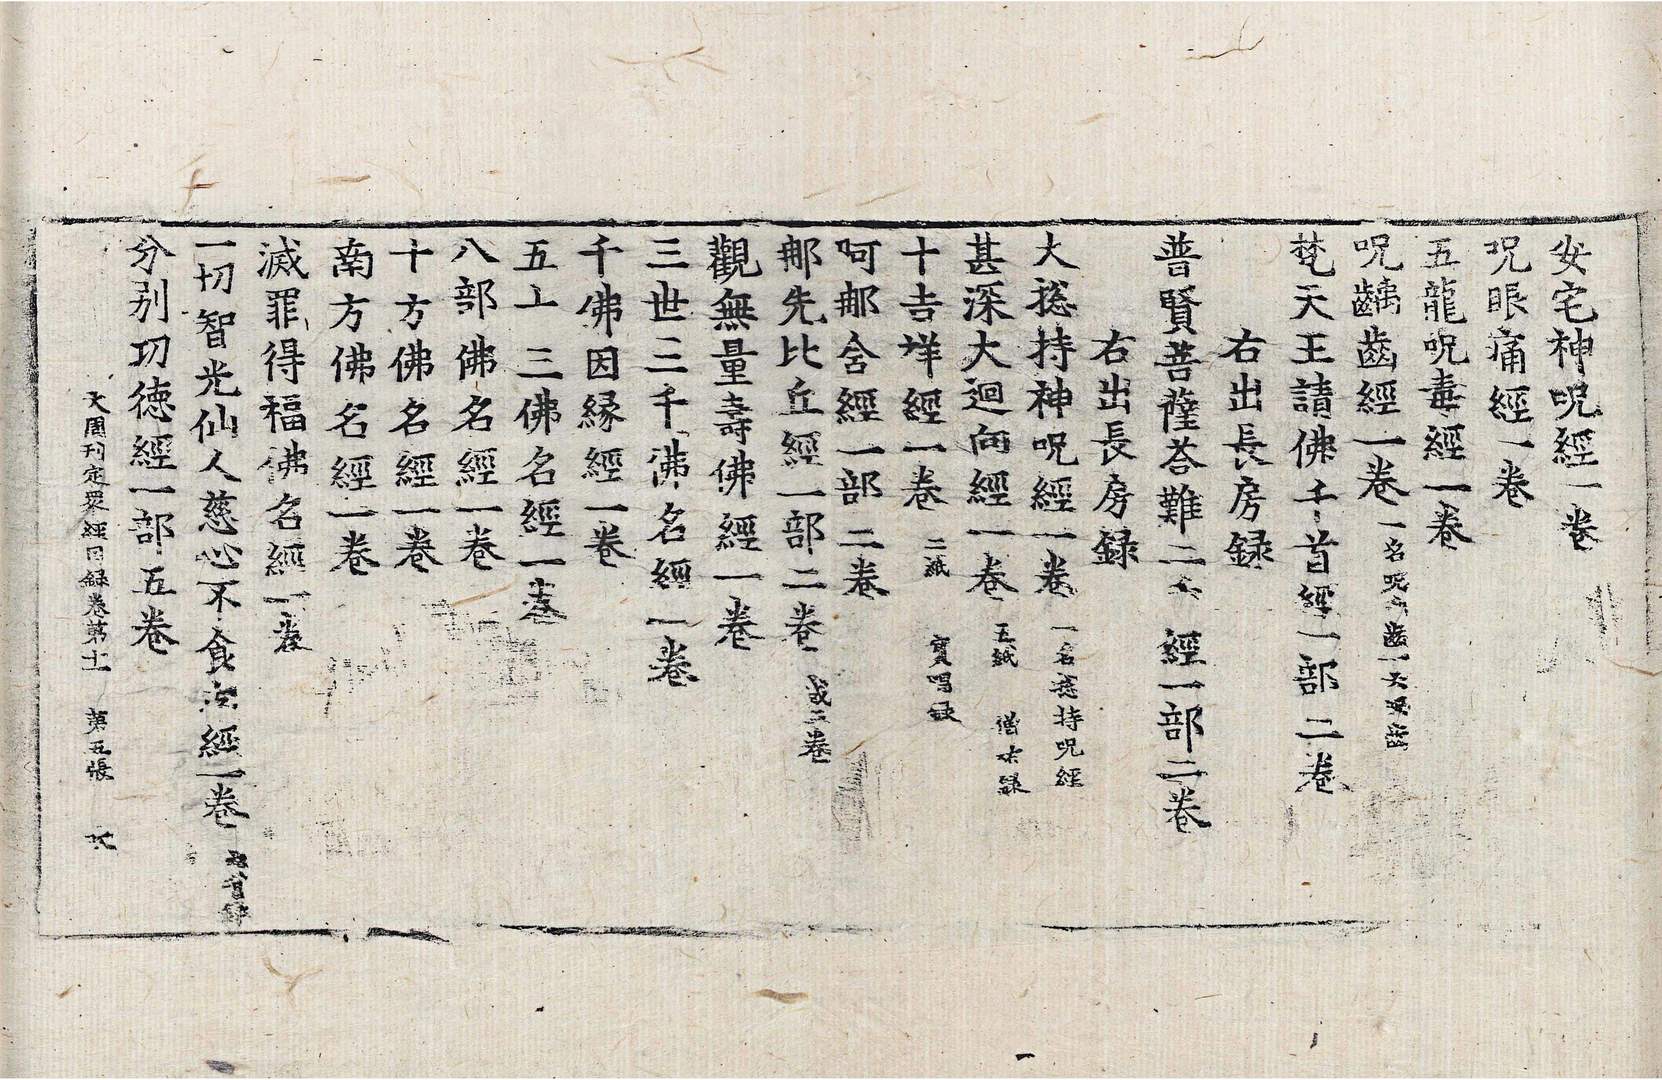 安宅神呪經一卷
呪眼痛經一卷
五龍呪毒經一卷
呪齲齒經一卷 一名呪 齒一名呪齒
梵天王請佛千首經一部二卷
右出長房録
普賢菩薩荅難二 經一部二卷
右出長房録
大揔持神呪經一卷 一名揔持呪經
甚深大迴向經一卷 五紙 僧祐録
十吉祥經一卷 二紙 寳唱録
呵郍含經一部二卷
郍先比丘經一部二卷 或三卷
觀無量壽佛經一卷
三世三千佛名經一卷
千佛因縁經一卷
五十三佛名經一卷
八部佛名經一卷
十方佛名經一卷
南方佛名經一卷
滅罪得福佛名經一卷
一切智光仙人慈心不食法經一卷
分别功徳經一部五卷
大周刊定衆經目録卷第十一 第五張